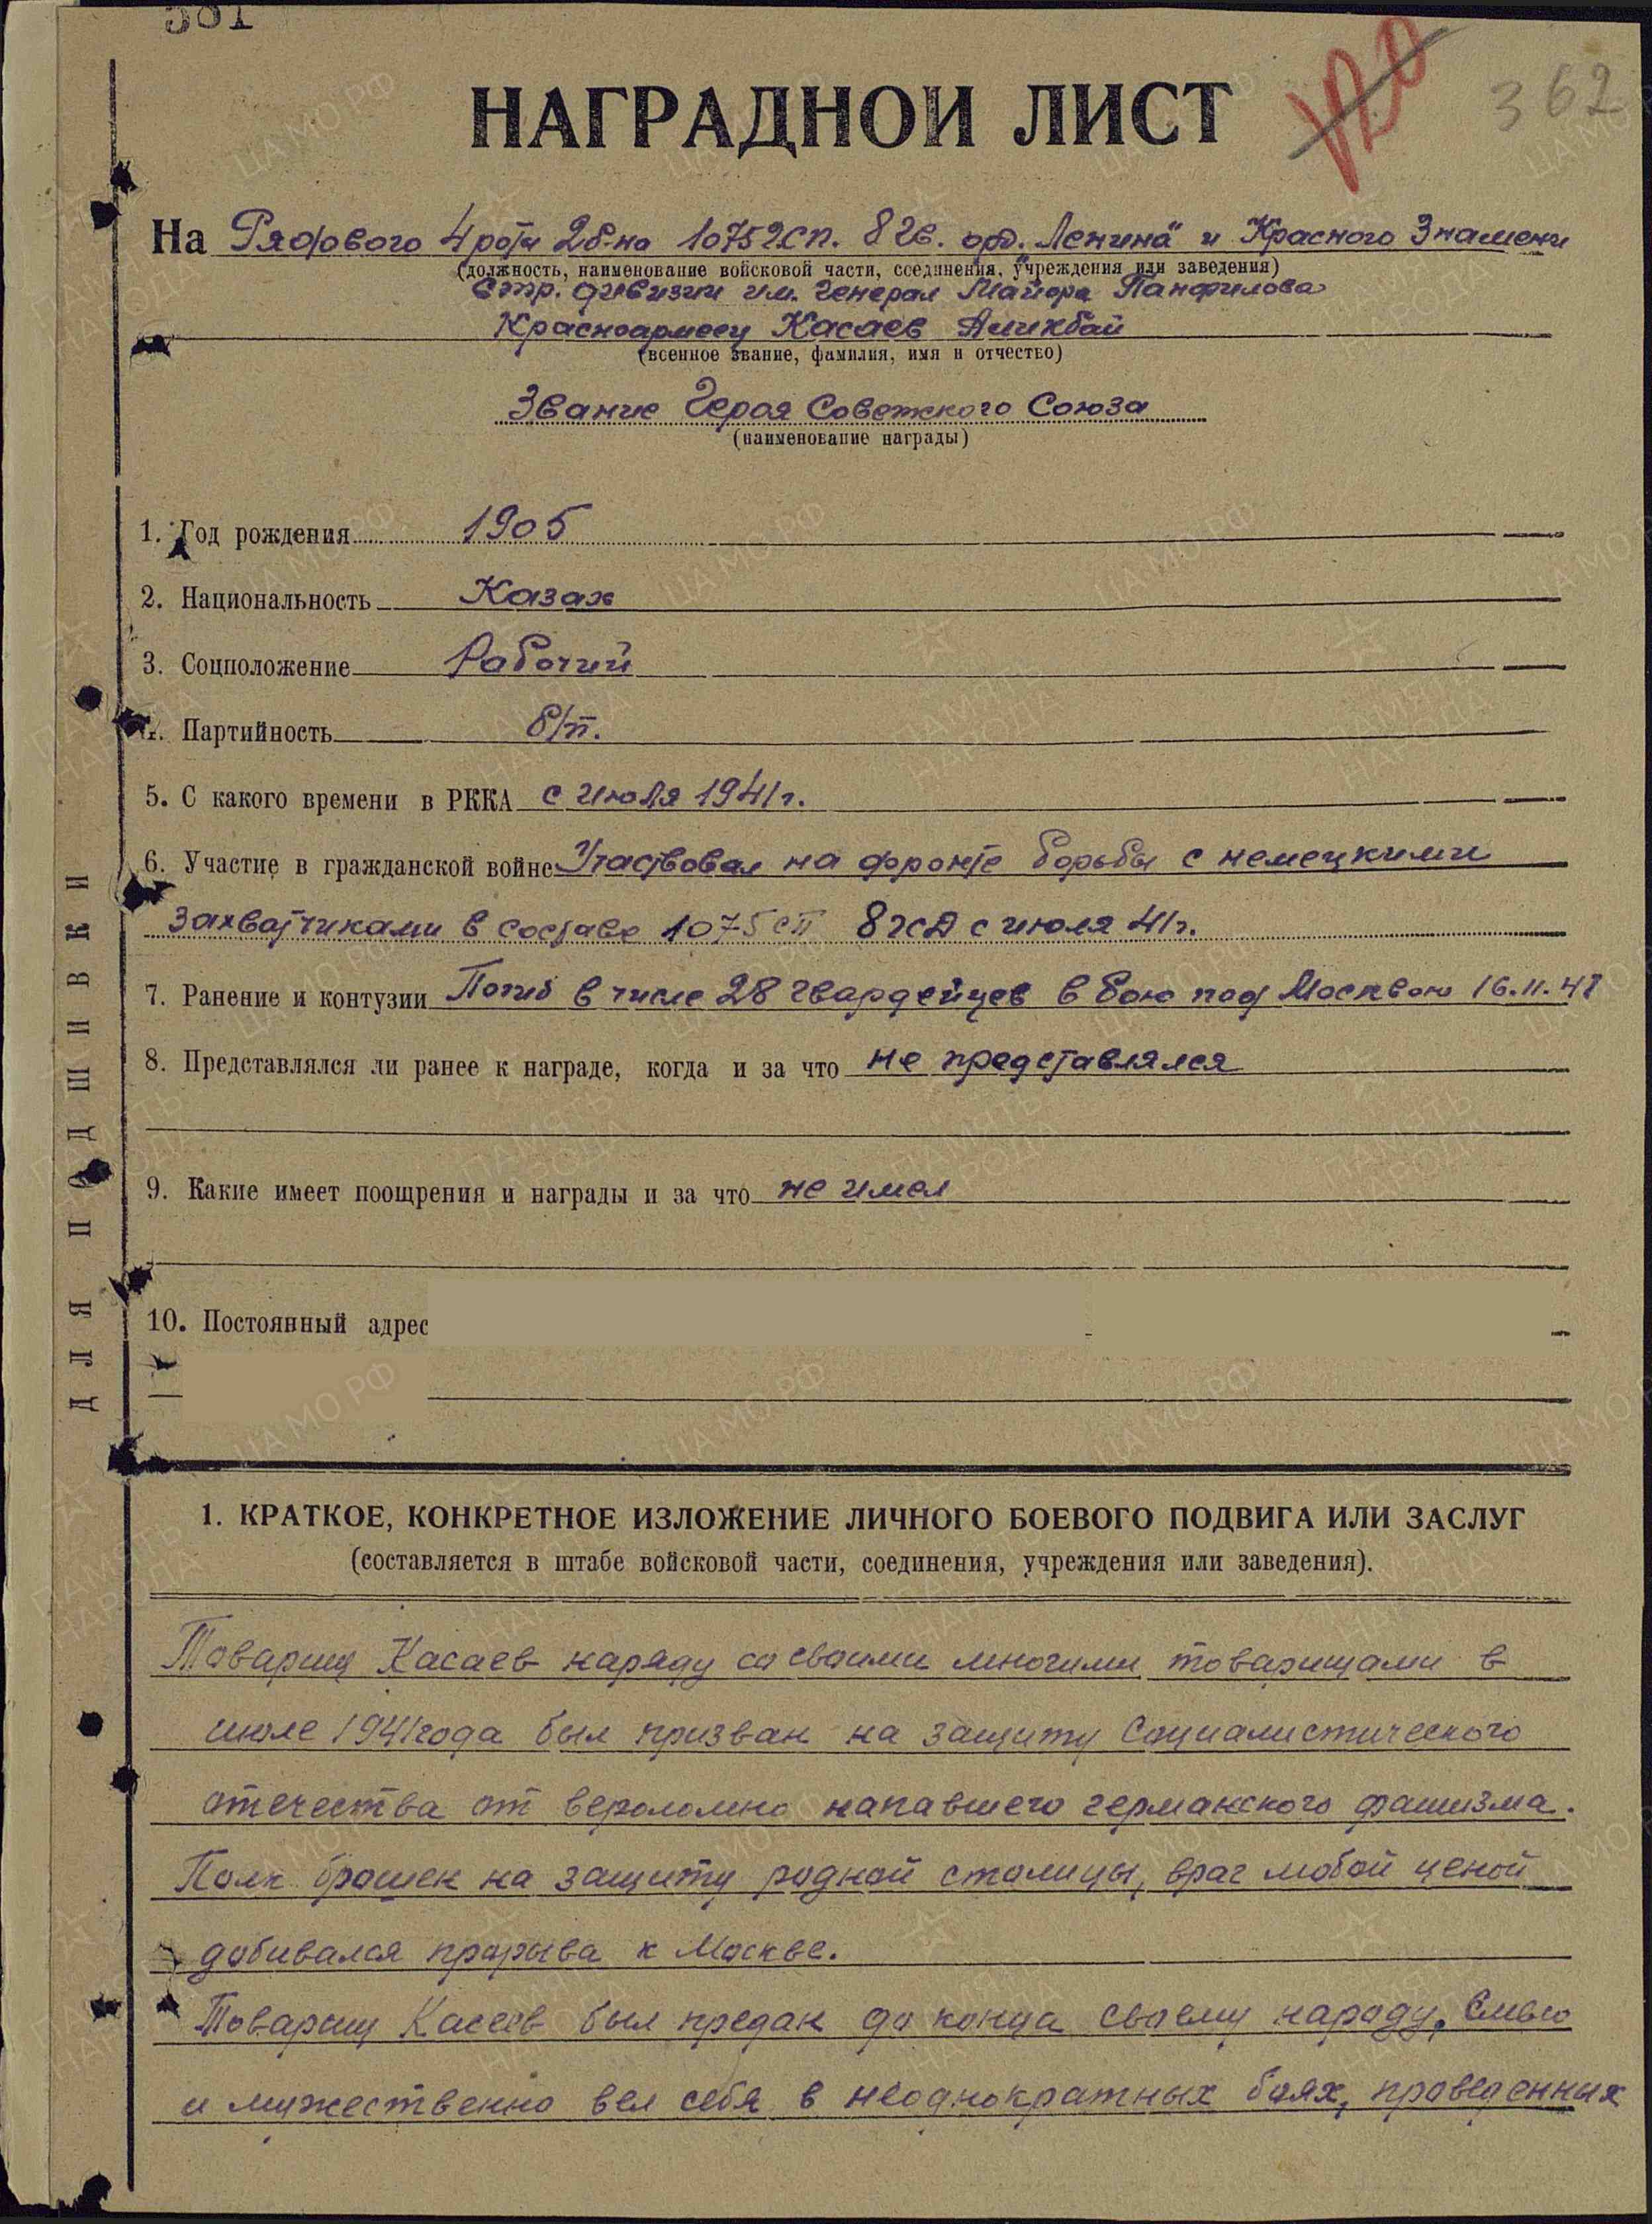 381
НАГРАДНОЙ ЛИСТ
362
На Рядового 4 роты 2 б-на 1075 гсп. 8 гв. орд. „Ленина" и Красного Знамени
(должность, наименование войсковой части, соединения, учреждения или заведения)
Стр. дивизии им. Генерал Майора Панфилова
Красноармеец Касаев Аликбай
(военное звание, фамилия, имя и отчество)
Звание Героя Советского Союза
(наименование награды)
1. Год рождения 1905
2. Национальность Казах
3. Соцположение Рабочий
4. Партийность б/п.
5. С какого времени в РККА с июля 1941 г.
6. Участие в гражданской войне Участвовал на фронте борьбы с немецкими
захватчиками в составе 1075 сп 8 гсд с июля 41 г.
7. Ранение и контузии Погиб в числе 28 гвардейцев в бою под Москвою 16.11.41
8. Представлялся ли ранее к награде, когда и за что не представлялся
9. Какие имеет поощрения и награды и за что не имел
10. Постоянный адрес
ДЛЯ ПОДШИВКИ
1. КРАТКОЕ, КОНКРЕТНОЕ ИЗЛОЖЕНИЕ ЛИЧНОГО БОЕВОГО ПОДВИГА ИЛИ ЗАСЛУГ
(составляется в штабе войсковой части, соединения, учреждения или заведения).
Товарищ Касаев наряду со своими многими товарищами в
июле 1941 года был призван на защиту Социалистического
отечества от вероломно напавшего германского фашизма.
Полк брошен на защиту родной столицы, враг любой ценой
добивался прорыва к Москве.
Товарищ Касаев был предан до конца своему народу. Смело
и мужественно вел себя в неоднократных боях, проведенных
ЦА МО РФ
ПАМЯТЬ НАРОДА